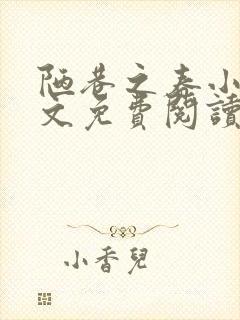 陋巷之春小
文免費閱讀
小香兒